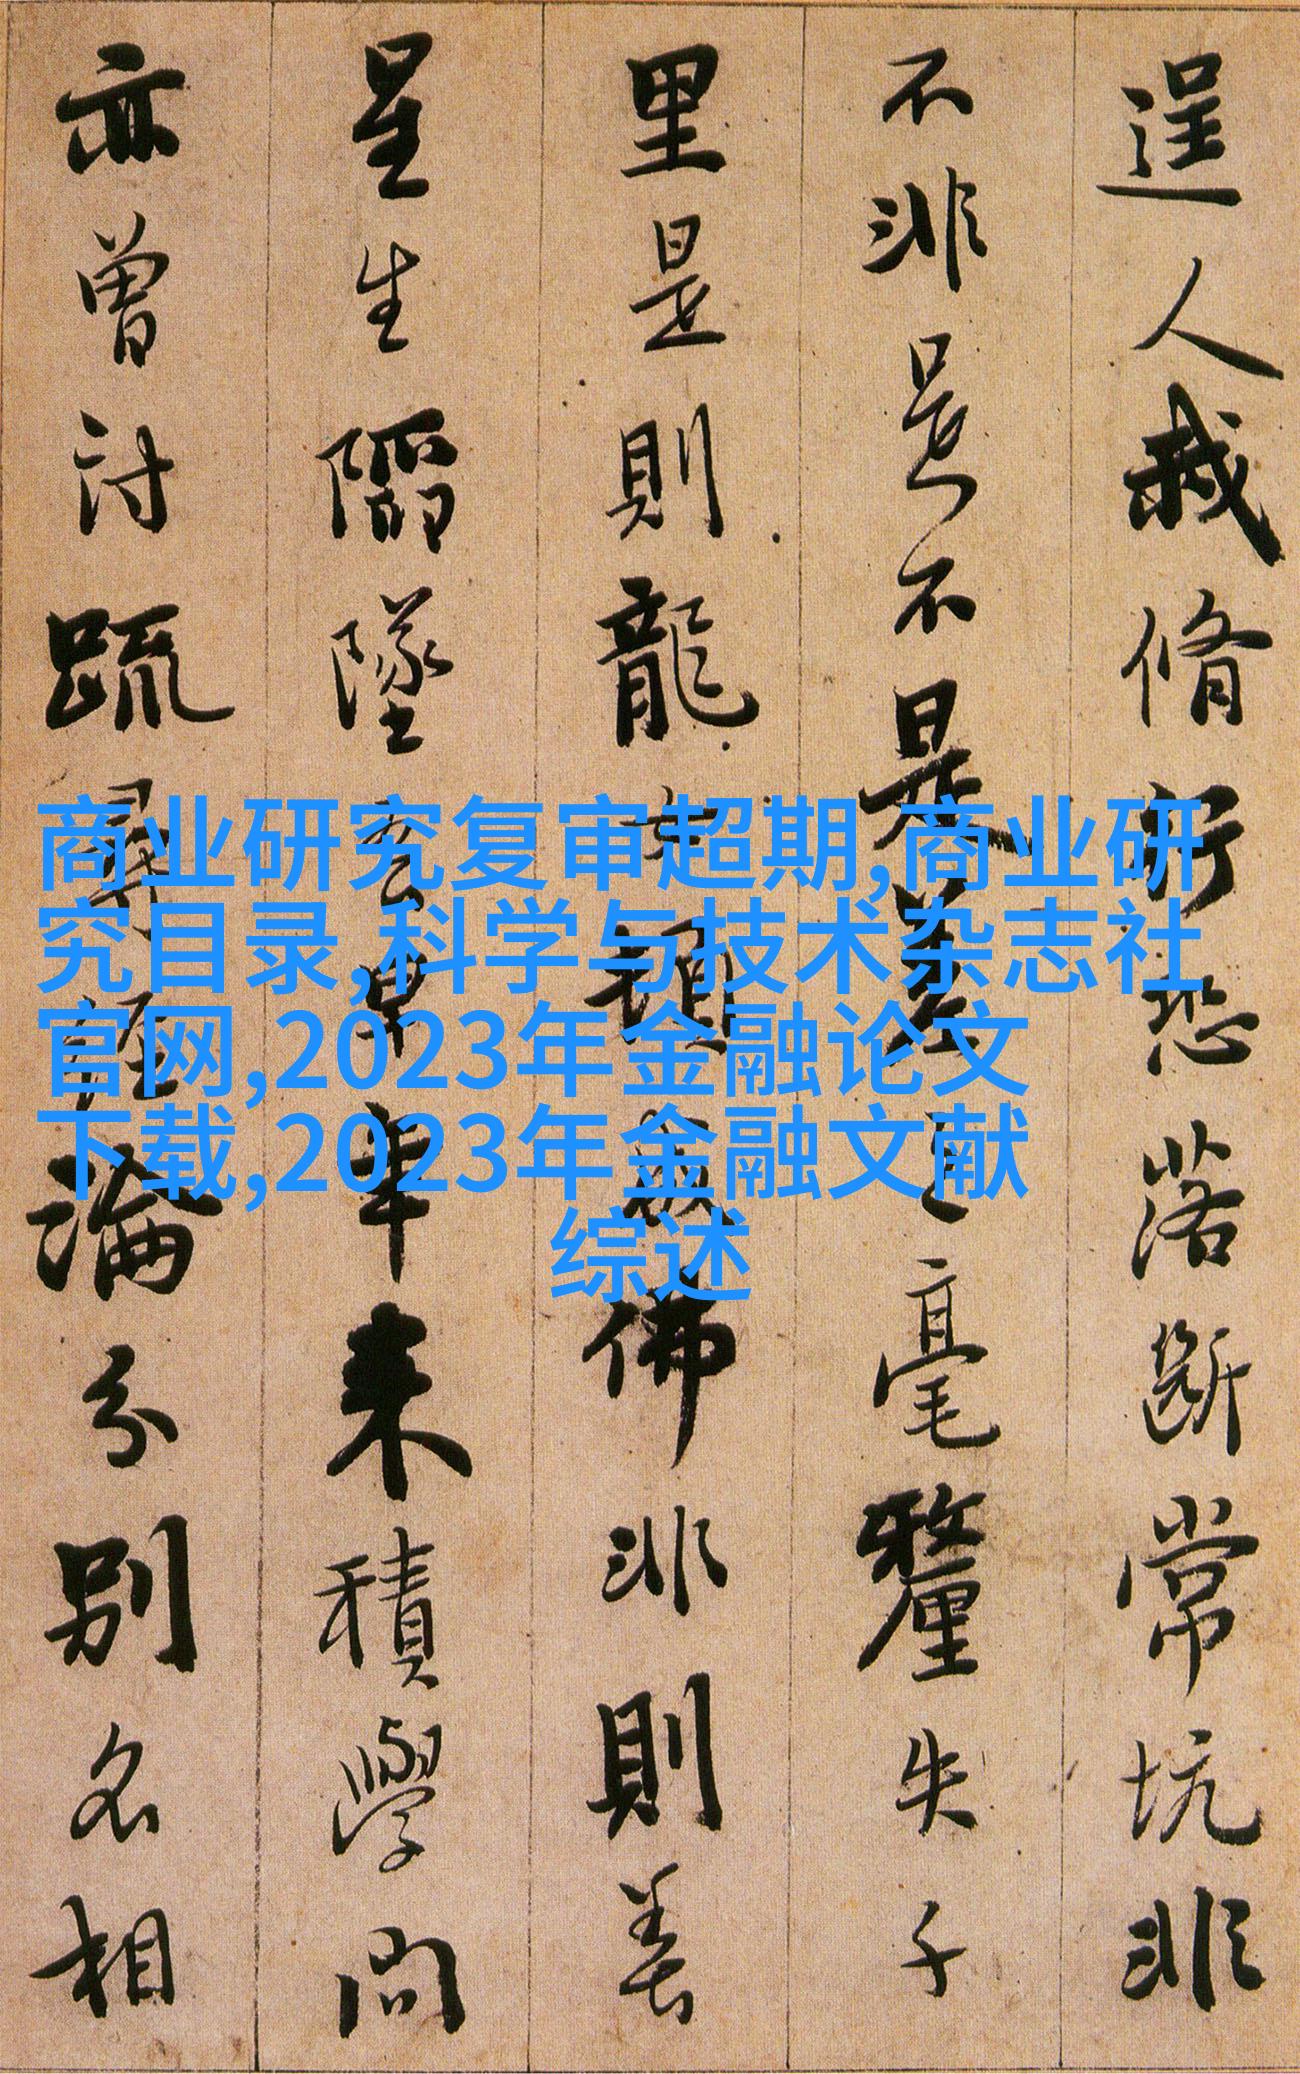 逞人我脩行恐落斷常坑非
不非是不是差之毫釐失千
里是則龍女頓成佛非則善
星生陷墜吾早年来積學問
亦曾討疏尋經論分別名相
商业研究复审超期,商业研
究目录,科学与技术杂志社
官网,2023年金融论文
下载,2023年金融文献
综述